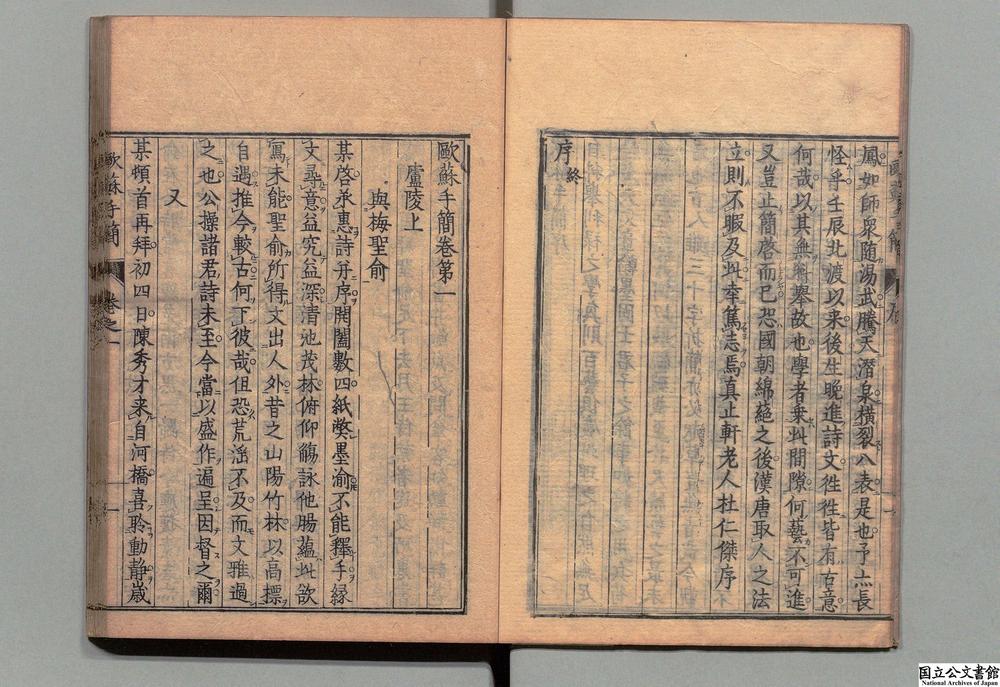 鳳如師衆随湯武騰天潛泉横裂八表是也予亦長
怪乎壬辰北渡以来後生晚進詩文徃徃皆有古意
何哉以其無科舉故也學者乗此間隙何藝不可進
又豈止簡啓而已恐國朝綿蕝之後漢唐取人之法
立則不暇及此幸篤志焉真止軒老人杜仁傑序
序終
歐蘇手簡卷第一
廬陵上
與梅聖俞
某啓承惠詩并序開闔數四紙弊墨渝不能釋手縁
文尋意益究益深清池茂林俯仰觴詠他腸蘊此欲
寫未能聖俞所得文出人外昔之山陽竹林以高標
自遇推今較古何下彼哉但恐荒淫不及而文雅過
之也公操諸君詩未至今當以盛作遍呈因督之爾
又
某頓首再拜初四日陳秀才来自河橋喜聆動静歳
歐蘇手簡
卷之一
一
国立公文書館
National Archives of Japan